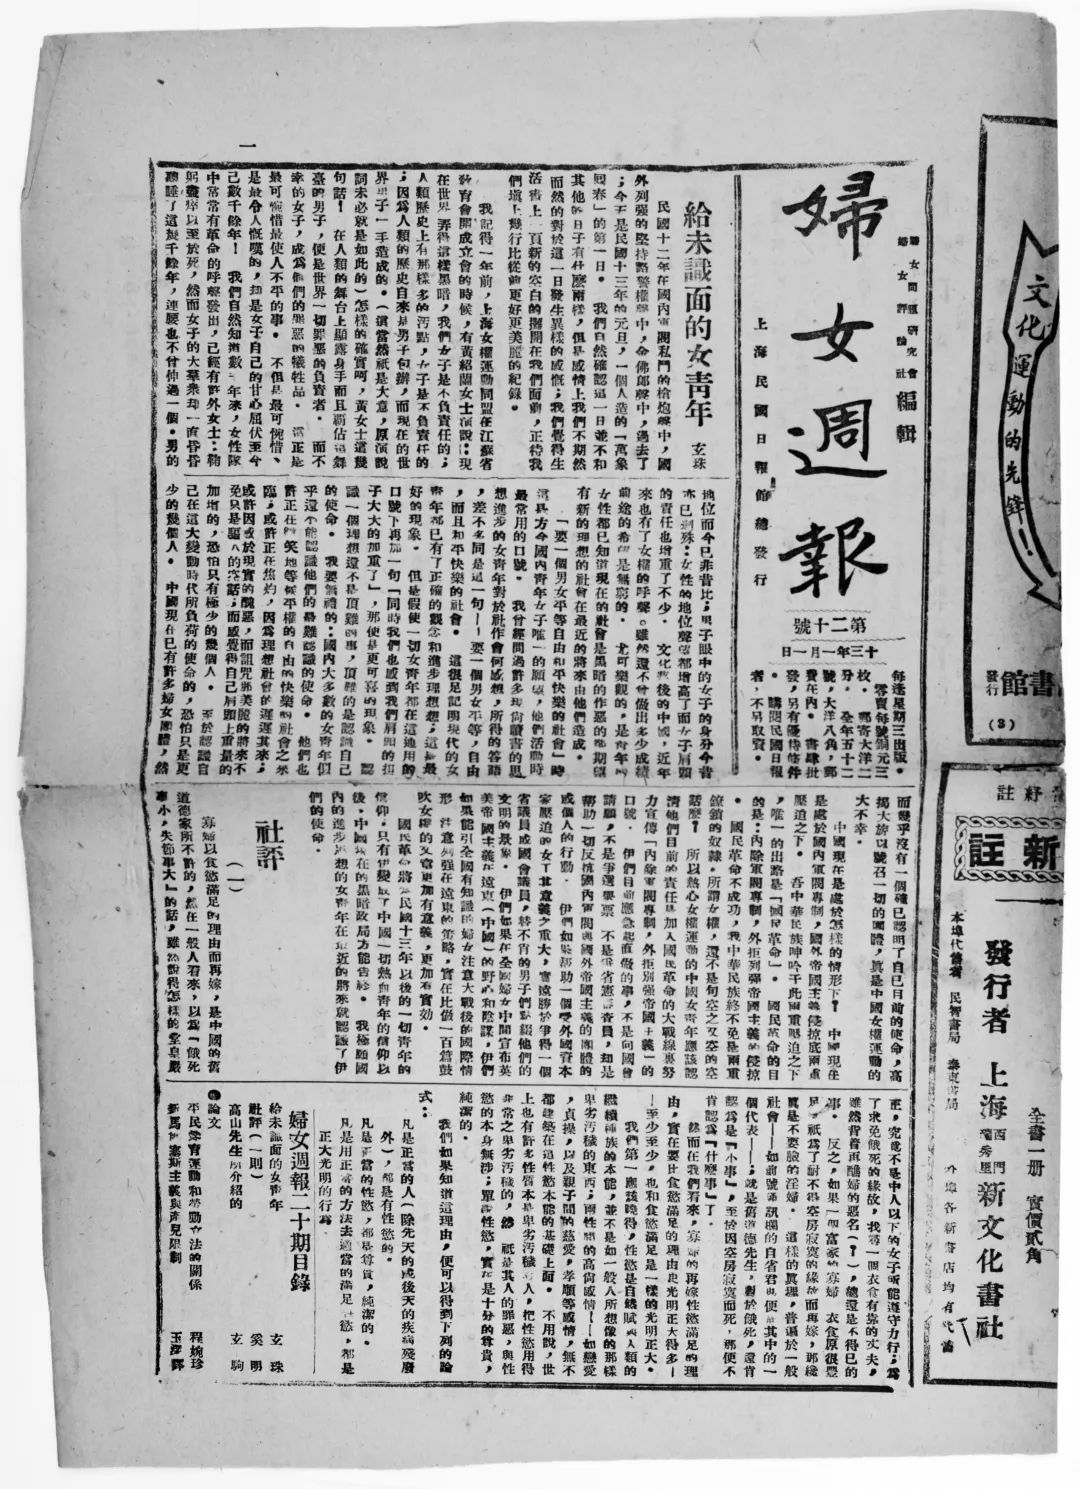 婦女週報
婦女問題研究會
婦女評論社
編輯
上海民國日報館總發行
第二十號
十三年一月一日
每逢星期三出版。
零賣每號銅元三
枚。郵寄大洋二
分。全年五十二
號,大洋八角,郵
費在內。書肆批
發,另有優待條件
。購閱民國日報
者,不另取資。
給未識面的女青年
玄珠
民國十二年在國內軍閥私鬥的槍炮聲中,國
外列強的堅持路警權聲中,金佛郎聲中,過去了
;今天是民國十三年的元旦,一個人造的「萬象
回春」的第一日。我們自然確認這一日並不和
其他的日子有什麼兩樣,但是感情上我們不期然
而然的對於這一日發生異樣的感慨;我們覺得生
活書上一頁新的空白的攤開在我們面前,正待我
們填上幾行比從前更好更美麗的紀錄。
我記得一年前,上海女權運動同盟在江蘇省
教育會開成立會的時候,有黃紹蘭女士演說:現
在世界弄得這樣黑暗,我們女子是不負責任的;
人類歷史上有那樣多的污點,女子是不負責任的
;因爲人類的歷史自來是男子包辦,而現在的世
界男子一手造成的。(這當然祇是大意,原演說
詞未必就是如此的)怎樣的確實呵,黃女士這幾
句話!在人類的舞台上顯露身手而且霸佔這舞
臺的男子,便是世界一切罪惡的負責者。而不
幸的女子,成爲他們的罪惡的犧牲品。這正是
最可惋惜最使人不平的事。不但是最可惋惜、
是最令人慨嘆的,却是女子自己的甘心屈伏至今
已數千餘年!我們自然知道數千年來,女性隊
中常常有革命的呼聲發出,已經有許外女士:鞠
躬盡瘁以至於死,然而女子的大羣衆却一直昏昏
聽睡了這幾千餘年,連腰也不曾伸過一個。男的
地位而今已非昔比;男子眼中的女子的身分今昔
亦已判殊:女性的地位聲望都增高了而女子肩頭
的責任也增重了不少。文化較後的中國,近年
來也有了女權的呼聲。雖然還不曾做出多少成績
前途的希望是無窮的。尤可樂觀的,是青年的
女性都已知道現在的社會是黑暗的作惡的都期望
有新的理想的社會在最近的將來由他們造成。
「要一個男女平等自由和平快樂的社會」時
這是方今國內青年女子唯一的願望,他們活動時
最常用的口號。我曾經問過許多現尚讀書的思
想進步的女青年對於社會何感想,所得的答語
,差不多同是這一句——要一個男女平等,自由
,而且和平快樂的社會。這很足記明現代的女
青年都已有了正確的觀念和進步理想想;這是最
好的現象。但是假使一切女青年都在這通用的
口號下再加一句「同時我們也感到我們肩頭的担
子大大的加重了」,那便是更可喜的現象。認
識一個理想還不是頂難的事,頂難的是認識自己
的使命。我要無禮的:國內大多數的女青年似
乎還不能認識他們的最難認識的使命。他們也
許正在嬉笑地等候平權的自由的快樂的社會之來
臨;或許正在焦灼,因爲理想社會的遲遲其來;
或許因感於現實的醜惡,而詛咒那美麗的將來不
免只是騙人的空話;而感覺得自己肩頭上重量的
加增的,恐怕只有極少的幾個人。至於認識自
己在這大變動時代所負荷的使命的,恐怕只是更
少的幾個人。中國現在已有許多婦女團體,然
而幾乎沒有一個確已認明了自已目前的使命,高
揭大旂以號召一切的團體,眞是中國女權運動的
大不幸。
中國現在是處於怎樣的情形下?中國現在
是處於國內軍閥專制,國外帝國主義侵掠底兩重
壓迫之下。吾中華民族呻吟于此兩重壓迫之下
,唯一的出路是「國民革命」。國民革命的目
的是:內除軍閥專制,外拒列彊帝國主義的侵掠
。國民革命不成功,我中華民族終不免是兩重
鐐鎖的奴隸。所謂女權,還不是句空之又空的空
話麽?所以熱心女權運動的中國女青年應該認
清他們目前的責任是加入國民革命的大戰線裏努
力宣傳「內除軍閥專制,外拒別強帝國主義」的
口號。伊們目前應急起直做的事,不是向國會
請願,不是爭選舉票,不是爭省憲請查員,却是
幫助一切反抗國內軍閥與國外帝國主義的團體的
或個人的行動。伊們如果幫助一個受外國資本
家壓迫的女工其意義之重大,實遠勝於爭得一個
省議員或國會議員,替不肖的男子們點綴他們的
文明的景象。伊們如果在全國婦女中間宣布英
美帝國主義在遠東(中國)的野心和陰謀,伊們
如果能引全國有知識的婦女注意大戰後的國際情
形,注意列強在遠東的策略,實在比做一百篇鼓
吹女權的文章更加有意義,更加有實効。
國民革命將爲民國十三年以後的一切青年的
信仰。只有伊變成了中國一切熱血青年的信仰以
後,中國現在的黑暗政局方能告終。我極願國
內的進步思想的女青年在最近的將來就認識了伊
們的使命。
社評
(一)
寡婦以食慾滿足的理由而再嫁,是中國的舊
道德家所不許的,然在一般人看來,以爲「餓死
事小,失節事大」的話,雖然說得怎樣的堂皇嚴
正,究竟不是中人以下的女子所能遵守力行;爲
了求免餓死的緣故,我尋一個衣食有靠的丈夫,
雖然背着再醮婦的惡名(?),總還是不得已的
事。反之,如果一個富家的寡婦,衣食原很豐
足,祇爲了耐不得空房寂寞的緣故而再嫁,那纔
眞是不要臉的淫婦。這樣的眞理,普遍於一般
社會——如前號通訊欄的自省君也便是其中的一
個代表——;就是舊道德先生,對於餓死,還肯
認爲「小事」,至於因空房寂寞而死,那便不
肯認爲「什麼事」了。
然而在我們看來,寡婦的再嫁性慾滿足的理
由,實在要比食慾滿足的理由更光明正大得多—
—至少至少,也和食慾滿足是一樣的光明正大。
我們第一應該曉得,性慾是自然賦與人類的
繼續種族的本能,並不是如一般人所想像的那樣
卑劣汚穢的東西;兩性間的高尚感情——如戀愛
,貞操,以及親子間的慈愛,孝順等感情,無不
都建築在這性慾本能的基礎上面。不用說,世
上也有許多性質本是卑劣汚穢的人,把性慾用得
非常之卑劣汚穢的,然祇是其人的罪惡,與性
慾的本身無涉;單講性慾,實在是十分的尊貴,
純潔的。
我們如果知道這理由,便可以得到下列的論
式:
凡是正當的人(除先天的或後天的疾病殘廢
外),都是有性慾的。
凡是正當的性慾,都是尊貴,純潔的。
凡是用正當的方法去適當的滿足性慾,都是
正大光明的行爲。
婦女週報二十期目錄
給未識面的女青年 玄珠
社評(一則) 奚明
高山先生所介紹的 玄駒
●論文
平民教育運動和勞動立法的關係 程婉珍
新馬爾塞斯主義與產兒限制 玉潭譯
一
文化運動的先鋒!
書館
發行
(3)
註紓
新註
發行者 上海西門 新文化書社
本埠代售者 民智書局 泰東書局
外埠各新書店均有代售
全書一册 實價貳角